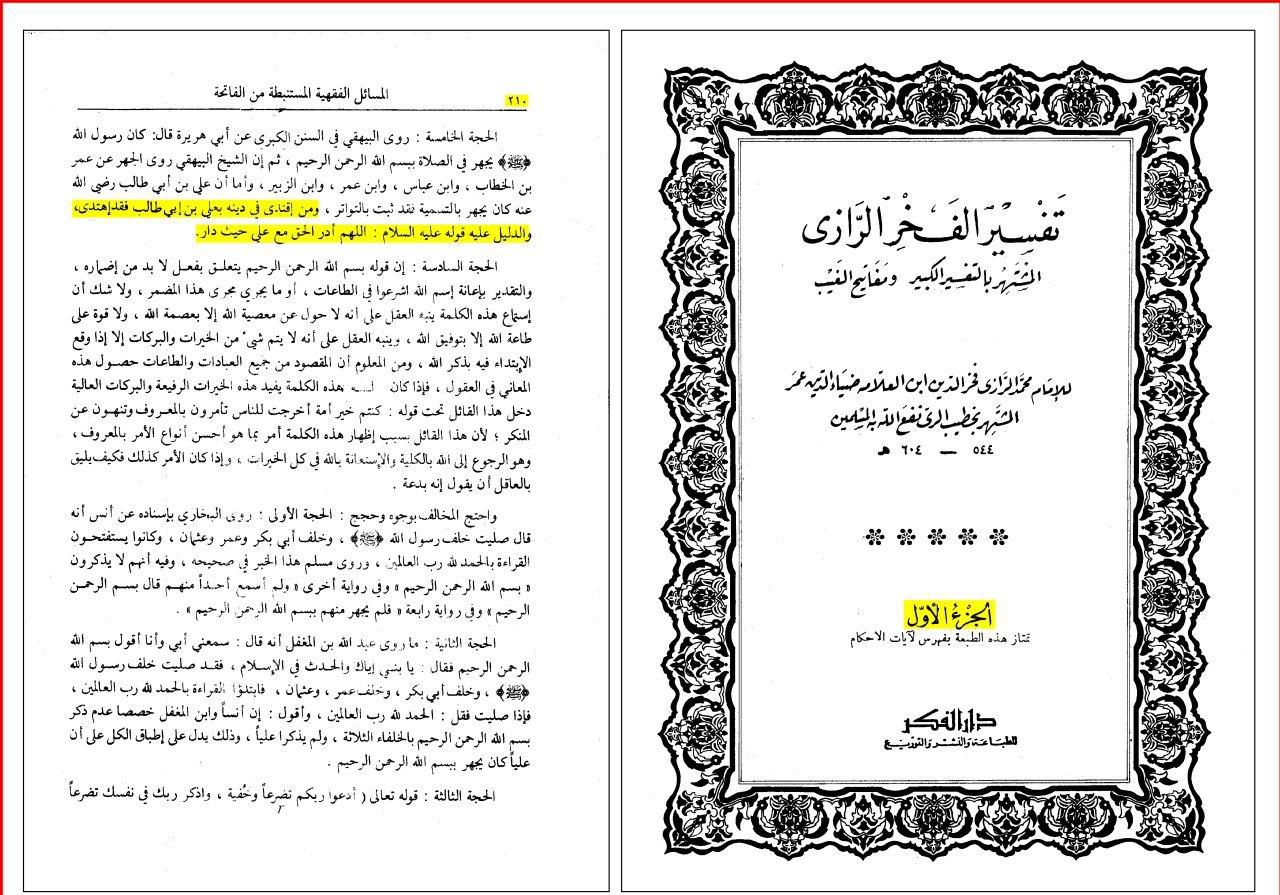 تفسير الفخر الرازى
المشتهر بالتفسير الكبير ومفاتيح الغيب
للإمام محمد الرازى فخر الدين ابن العلامه ضياء الدين عمر
المشتهر بخطيب الرى نفع الله به المسلمين
٥٤٤ — ٦٠٤ هـ
الجزء الأول
تمتاز هذه الطبعة بفهرس لآيات الاحكام
دار الفكر
للطباعة والنشر والتوزيع
٢١٠ المسائل الفقهية المستنبطة من الفاتحة
الحجة الخامسة : روى البيهقي في السنن الكبرى عن أبي هريرة قال: كان رسول الله
﴿ﷺ﴾ يجهر في الصلاة ببسم الله الرحمن الرحيم ، ثم إن الشيخ البيهقي روى الجهر عن عمر
بن الخطاب ، وابن عباس ، وابن عمر ، وابن الزبير ، وأما أن علي بن أبي طالب رضي الله
عنه كان يجهر بالتسمية فقد ثبت بالتواتر ، ومن إقتدى في دينه بعلي بن إبي طالب فقد إهتدى،
والدليل عليه قوله عليه السلام : اللهم أدر الحق مع علي حيث دار.
الحجة السادسة : إن قوله بسم الله الرحمن الرحيم يتعلق بفعل لا بد من إضماره ،
والتقدير بإعانة إسم الله اشرعوا في الطاعات ، أو ما يجري مجرى هذا المضمر ، ولا شك أن
إستماع هذه الكلمة ينبه العقل على أنه لا حول عن معصية الله إلا بعصمة الله ، ولا قوة على
طاعة الله إلا بتوفيق الله ، وينبه العقل على أنه لا يتم شيء من الخيرات والبركات إلا إذا وقع
الإبتداء فيه بذكر الله ، ومن المعلوم أن المقصود من جميع العبادات والطاعات حصول هذه
المعاني في العقول ، فإذا كان هذه الكلمة يفيد هذه الخيرات الرفيعة والبركات العالية
دخل هذا القائل تحت قوله : كنتم خير أمة أخرجت للناس تأمرون بالمعروف وتنهون عن
المنكر ؛ لأن هذا القائل بسبب إظهار هذه الكلمة أمر بما هو أحسن أنواع الأمر بالمعروف ،
وهو الرجوع إلى الله بالكلية والإستعانة بالله في كل الخيرات ، وإذا كان الأمر كذلك فكيف يليق
بالعاقل أن يقول إنه بدعة .
واحتج المخالف بوجوه وحجج : الحجة الأولى : روى البخاري بإسناده عن أنس أنه
قال صليت خلف رسول الله ﴿ﷺ﴾ ، وخلف أبي بكر وعمر وعثمان ، وكانوا يستفتحون
القراءة بالحمد لله رب العالمين ، وروى مسلم هذا الخبر في صحيحه ، وفيه أنهم لا يذكرون
« بسم الله الرحمن الرحيم » وفي رواية أخرى « ولم أسمع أحداً منهم قال بسم الرحمن
الرحيم » وفي رواية رابعة « فلم يجهر منهم ببسم الله الرحمن الرحيم » .
الحجة الثانية : ما روى عبد الله بن المغفل أنه قال : سمعني أبي وأنا أقول بسم الله
الرحمن الرحيم فقال : يا بني إياك والحدث في الإسلام ، فقد صليت خلف رسول الله
﴿ﷺ﴾ ، وخلف أبي بكر ، وخلف عمر ، وعثمان ، فابتدؤا القراءة بالحمد لله رب العالمين ،
فإذا صليت فقل : الحمد لله رب العالمين ، وأقول : إن أنساً وابن المغفل خصصا عدم ذكر
بسم الله الرحمن الرحيم بالخلفاء الثلاثة ، ولم يذكرا علياً ، وذلك يدل على إطباق الكل على أن
علياً كان يجهر ببسم الله الرحمن الرحيم .
الحجة الثالثة : قوله تعالى ( أدعوا ربكم تضرعاً وخُفية ، واذكر ربك في نفسك تضرعاً